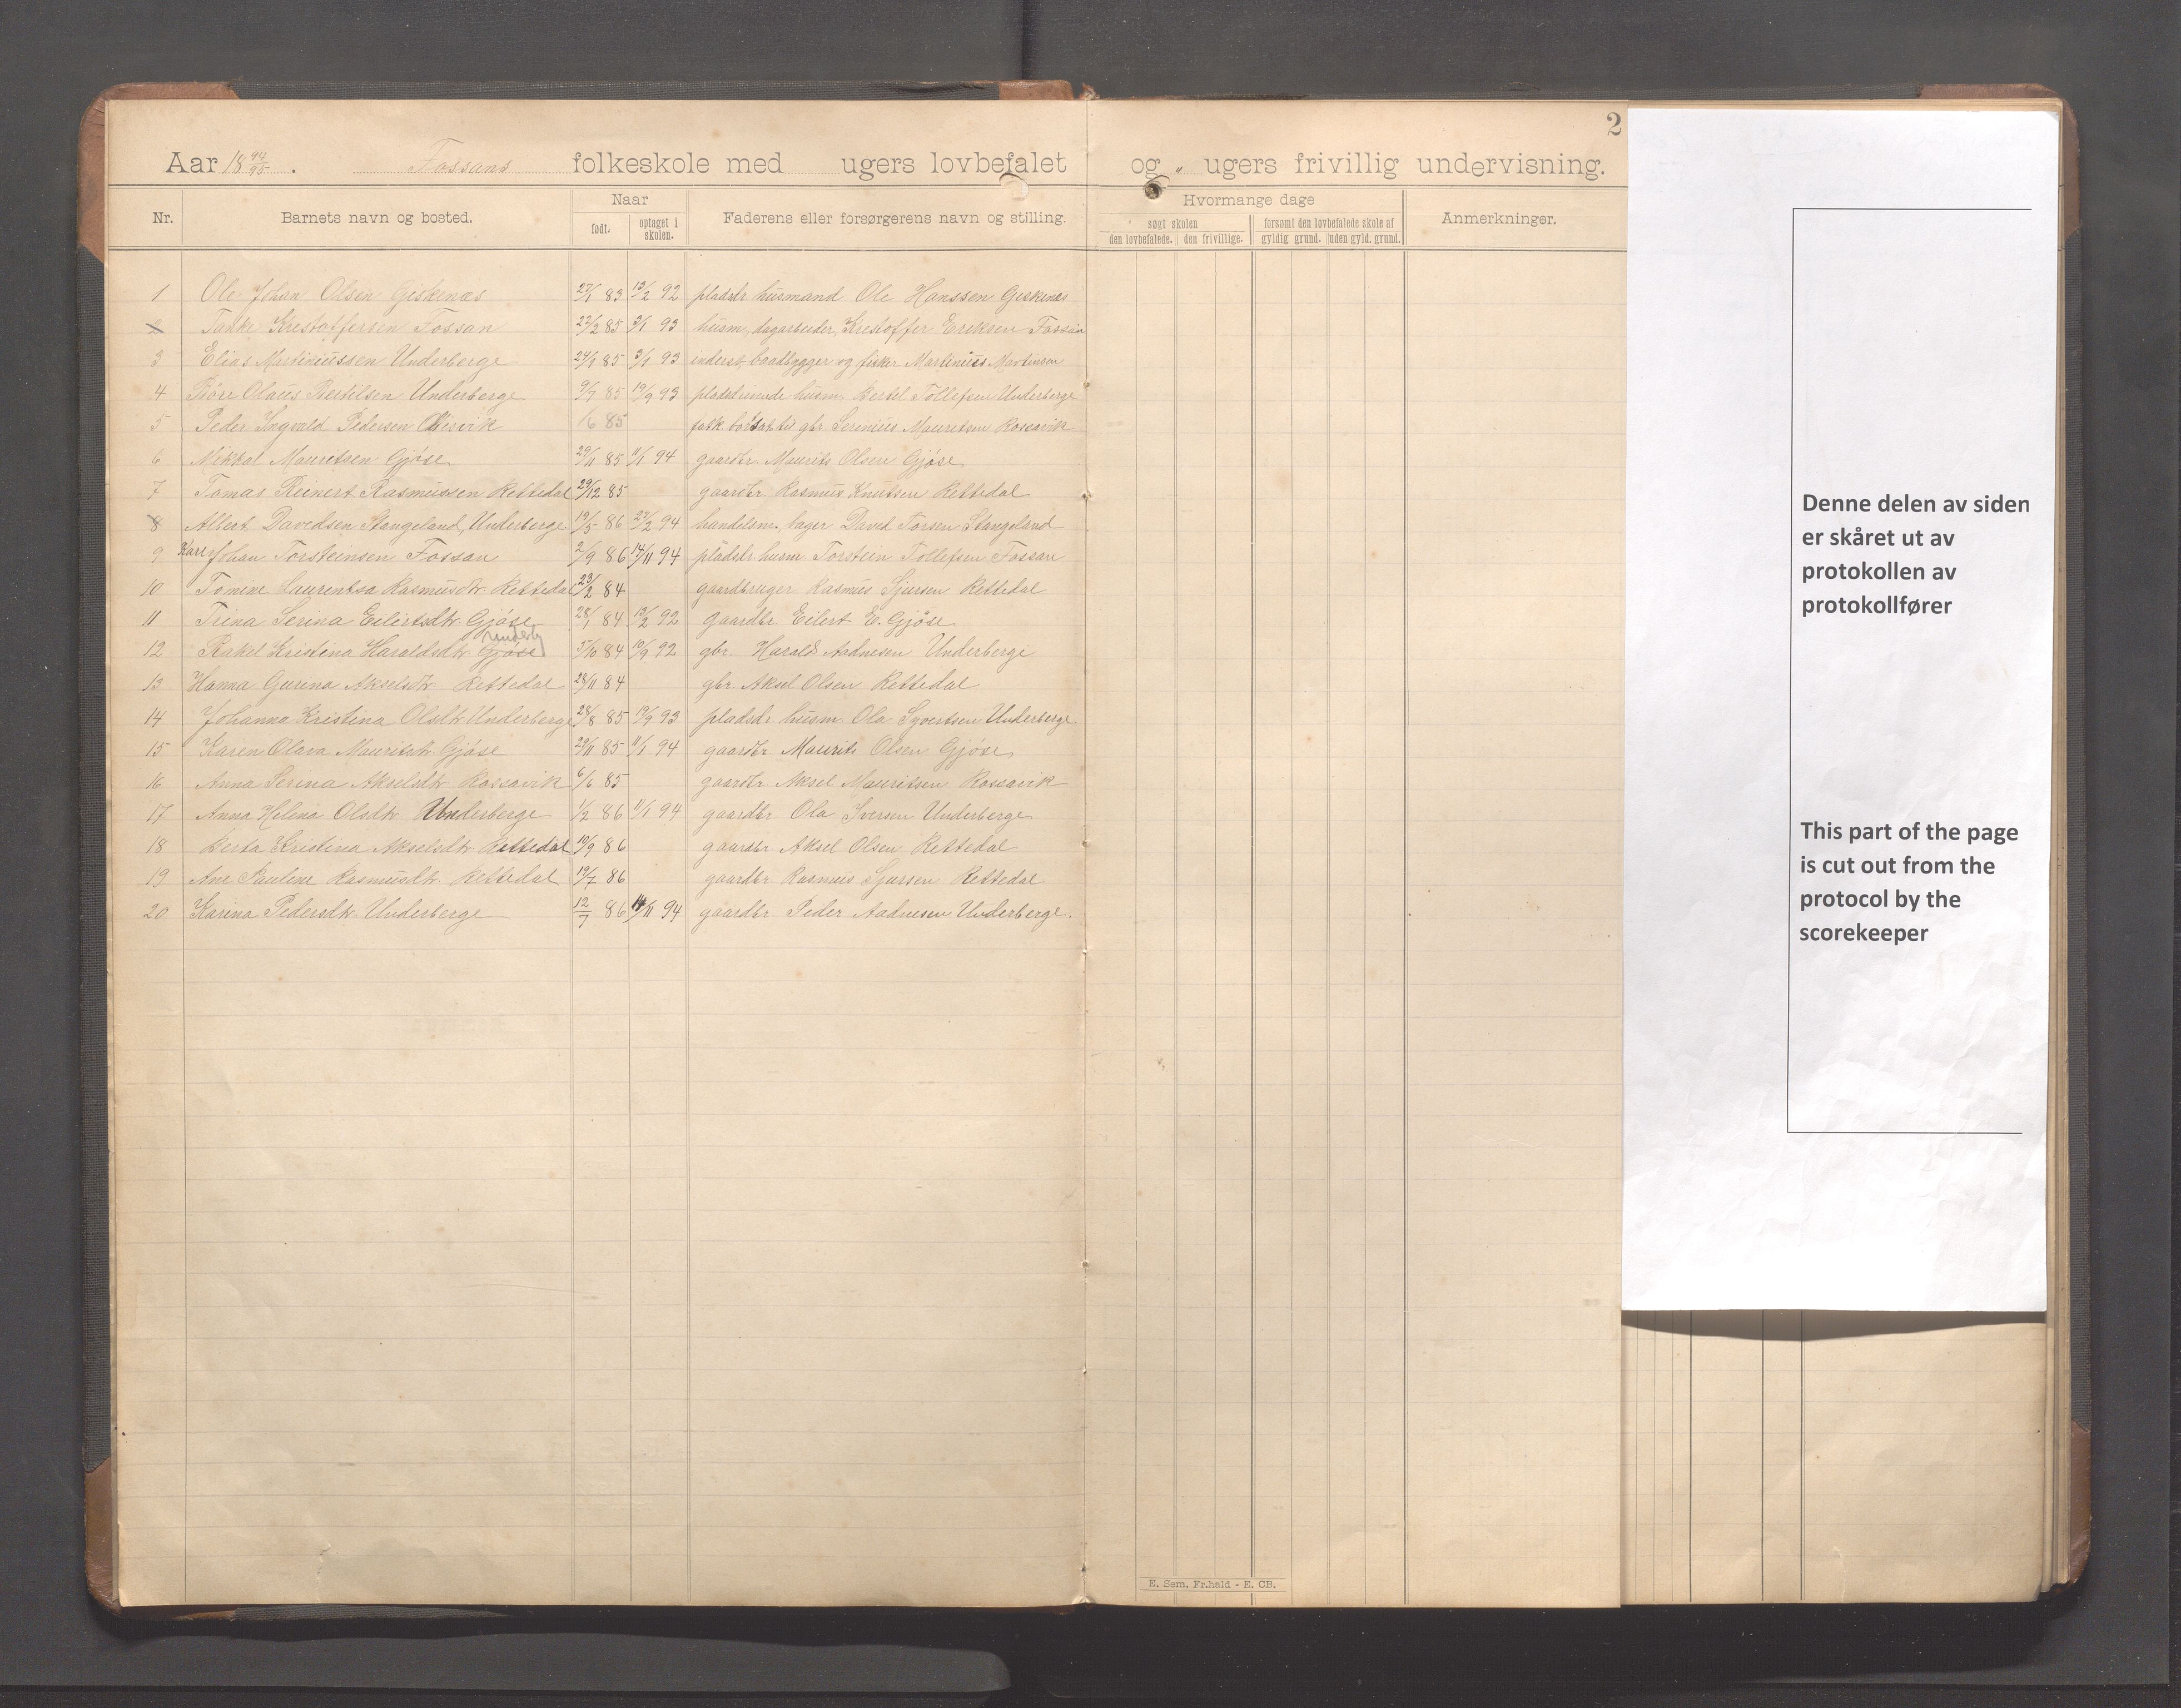 2
Aar 18 94/95. Fossans folkeskole med ugers lovbefalet og " ugers frivillig undervisning.
Nr. Barnets navn og bosted. Naar født. optaget i skolen. Faderens eller forsørgerens navn og stilling. Hvormange dage søgt skolen den lovbefalede. den frivillige. forsømt den lovbefalede skole af gyldig grund. uden gyld. grund. Anmerkninger.
1 Ole Johan Olsen Giskenæs 27/1 83 13/2 92 pladsbr husmand Ole Hanssen Geskenæs
2 Krestoffersen Fossan 22/2 85 3/1 93 husm, dagarbeider, Krestoffer Eriksen Fossan
3 Elias Martiniussen Underberge 24/1 85 3/1 93 inderst, baadbygger og fisker Martinius Martinsen
4 Olaus Bertilsen Underberge 9/7 85 19/9 93 husm. Bertel Tollefsen Underberge
5 Peder Ingvald Pedersen 1/6 85 gbr. Serinius Mauritsen Rossavik
6 Mikkal Mauritsen Gjøse 29/11 85 11/1 94 gaardbr. Maurits Olsen Gjøse
7 Tomas Reinert Rasmussen Rettedal 29/12 85 gaardbr Rasmus Knutsen Rettedal
8 Allert Davedsen Stangeland, Underberge 19/5 86 27/2 94 handelsm. bager David Torsen Stangeland
9 Karl Johan Torsteinsen Fossan 2/9 86 14/11 94 pladsbr husm Torstein Tollefsen Fossan
10 Tomine Laurentsa Rasmusdtr. Rettedal 23/2 84 gaardbruger Rasmus Sjursen Rettedal
11 Trina Serina Eilertsdtr Gjøse 28/1 84 13/2 92 gaardbr Eilert E. Gjøse
12 Rakel Kristina Haraldsdtr. Gjøse Underb 5/10 84 19/9 92 gbr. Harald Aadnesen Underberge
13 Hanna Gurina Akselsdtr Rettedal 28/11 84 gbr. Aksel Olsen Rettedal
14 Johanna Kristina Olsdtr Underberge 28/8 85 19/9 93 pladsbr husm Ola Syvertsen Underberge
15 Karen Olava Mauritsdtr. Gjøse 29/11 85 11/1 94 gaardbr Maurits Olsen Gjøse
16 Anna Serina Akselsdtr Rossavik 6/6 85 gaardbr Aksel Mauritsen Rossavik
17 Anna Helina Olsdtr Underberge 1/2 86 11/1 94 gaardbr Ola Iversen Underberge
18 Berta Kristina Akselsdtr Rettedal 19/9 86 gaardbr Aksel Olsen Rettedal
19 Ane Pauline Rasmusdtr. Rettedal 19/7 86 gaardbr Rasmus Sjursen Rettedal
20 Karina Pedersdtr Underberge 12/7 86 14/11 94 gaardbr Peder Aadnesen Underberge.
E. Sem, Fr.hald - E. CB.
Denne delen av siden
er skåret ut av
protokollen av
protokollfører
This part of the page
is cut out from the
protocol by the
scorekeeper